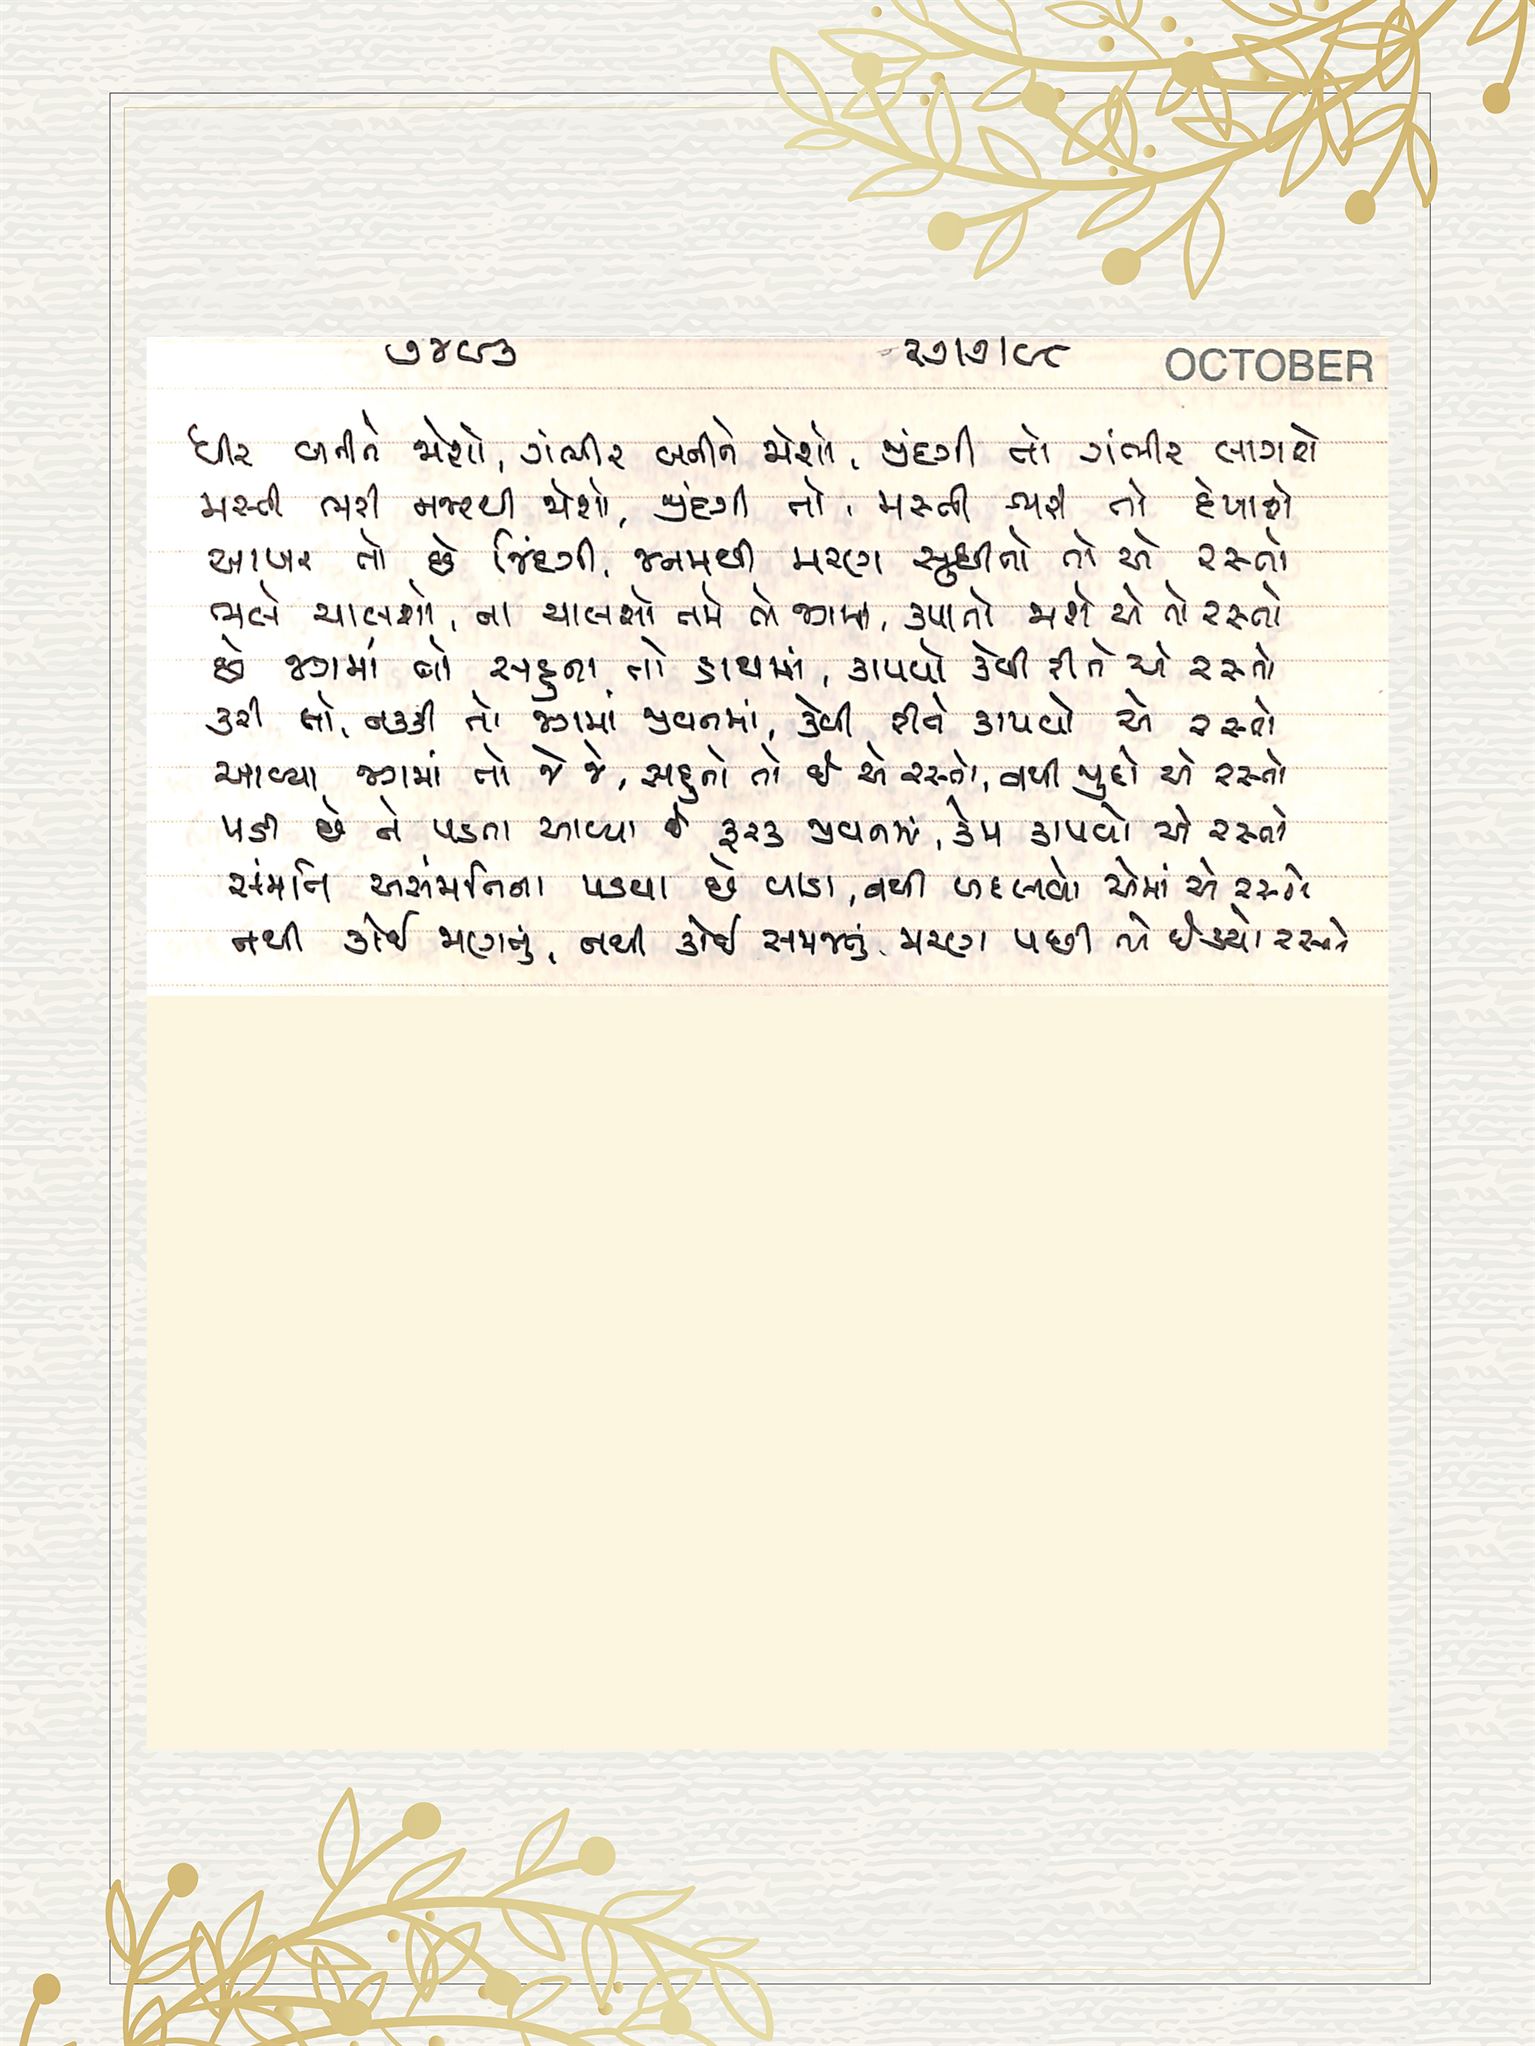 ૭૪૯૩ ૨૭/૭/૯૮ OCTOBER
ધીર બનીને જોશો, ગંભીર બનીને જોશો, જીંદગી તો ગંભીર લાગશે
મસ્તી ભરી નજરથી જોશો, જીંદગી તો, મસ્તી ભરી તો દેખાશે
આખર તો છે જિંદગી, જનમથી મરણ સુધીનો તો એ રસ્તો
ભલે ચાલશો, ના ચાલશો તમે તો જગમાં, કપાતો જાશે એ તો રસ્તો
છે જગમાં તો સહુના તો હાથમાં, કાપવો કેવી રીતે એ રસ્તો
કરી લો, નક્કી તો જગમાં જીવનમાં, કેવી રીતે કાપવો એ રસ્તો
આવ્યા જગમાં તો જે જે, સહુનો તો છે એ રસ્તો, નથી જુદો એ રસ્તો
પડી છે ને પડતા આવ્યા છે ફરક જીવનમાં, કેમ કાપવો એ રસ્તો
સંમતિ અસંમતિના પડયા છે વાડા, નથી બદલાયો એમાં એ રસ્તો
નથી કોઈ જાણતું, નથી કોઈ સમજતું, મરણ પછી તો છે કયો રસ્તો